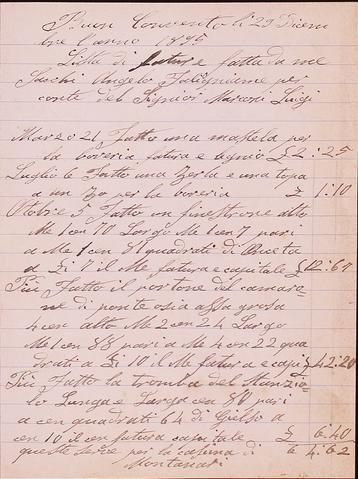 Buon Convento li 29 Diem
bre l'anno 1895
Lista di fature fatta da me
Sacchi Angelo Falegniame per
conte del Signior Marconi Luigi
Marzo 21 Fatto una mastela per
la boveria fatura e legnio £ 2:25
Luglio 6 Fatto una Zerla e una topa
a un Zo per la boveria £ 1:10
Otobre 3 Fatto un finestrone alto
Me 1 en 70 Largo Me 1 en 7 pari
a Me 1 en 81 quadrati di
a Li 7 il Me fatura e capitale £ 12:67
Piu Fatto il portone del camaro-
ne di ponte osia assa grosa
4 en alto Me 2 en 24 Largo
Me 1 en 88 pari a Me 4 en 22 qua
drati a Li 10 il Me fatura e capi £ 42:20
Piu Fatto la tromba del Stanzio
lo Lunga e Larga en 80 pari
a cen quadrati 64 di Gielso a
cen 10 il cen fatura capitale £ 6:40
queste serve per la casina di £ 4:62
Montanari